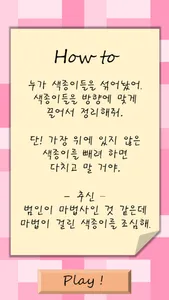 How to
누가 색종이들을 섞어놨어.
색종이들을 방향에 맞게
끌어서 정리해줘.
단! 가장 위에 있지 않은
색종이를 빼려 하면
다치고 말 거야.
- 추신 -
범인이 마법사인 것 같은데
마법이 걸린 색종이를 조심해.
Play !